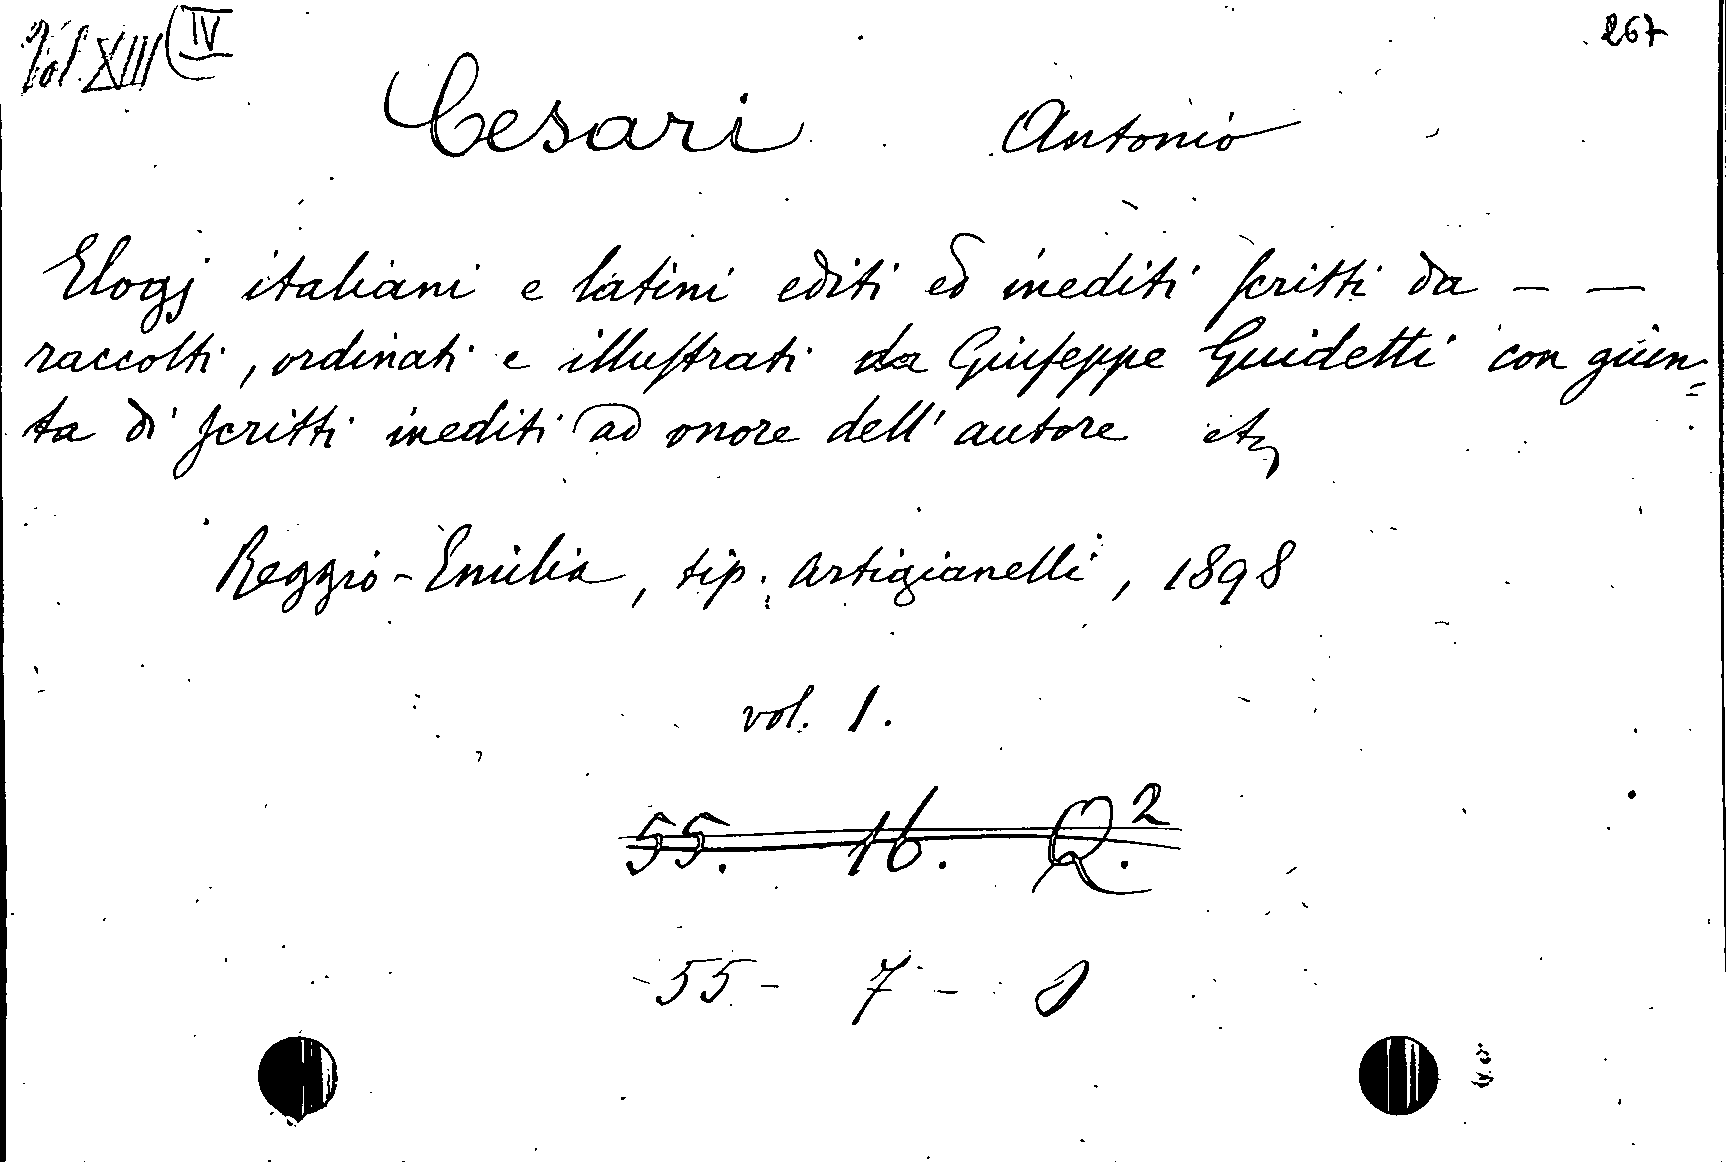 Vol. XIII (IV
267
Cesari Antonio
Elogj italiani e latini editi ed inediti scritti da – –
raccolti, ordinati e illustrati da Giuseppe Guidetti con giun=
ta di scritti inediti ad onore dell' autore etc
Reggio-Emilia, tip. Artigianelli, 1898
vol. 1.
55. 16. Q.²
55 - 7 -